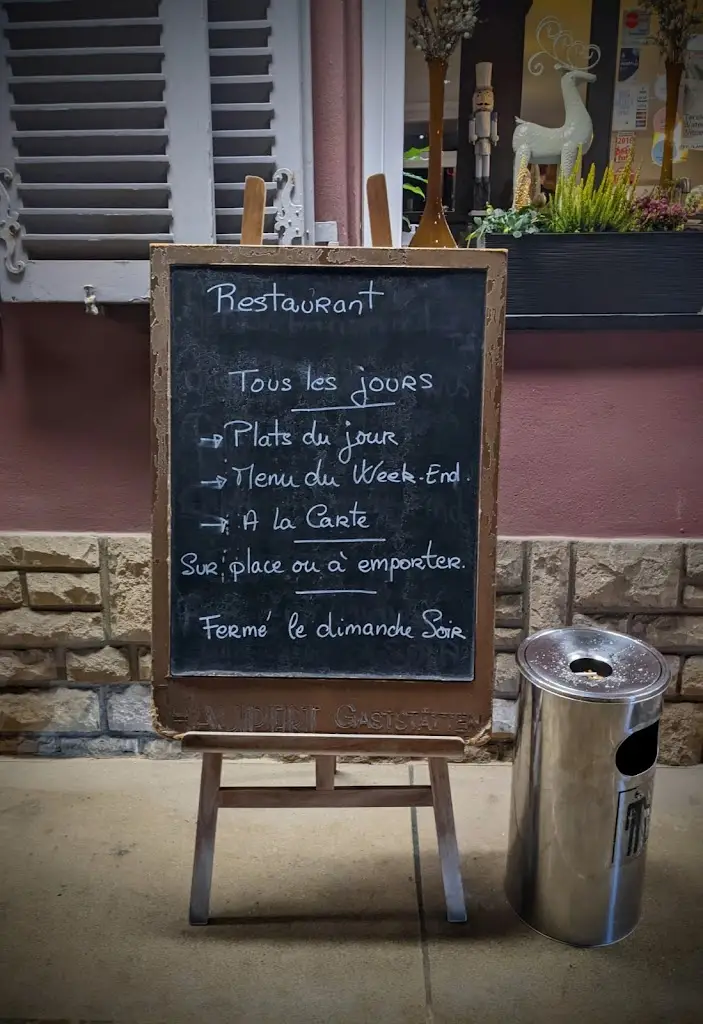 Restaurant
Tous les jours
→ Plats du jour
→ Menu du Week-End.
→ A La Carte
Sur place ou à emporter.
Fermé le dimanche Soir
GASTSTÄTTEN